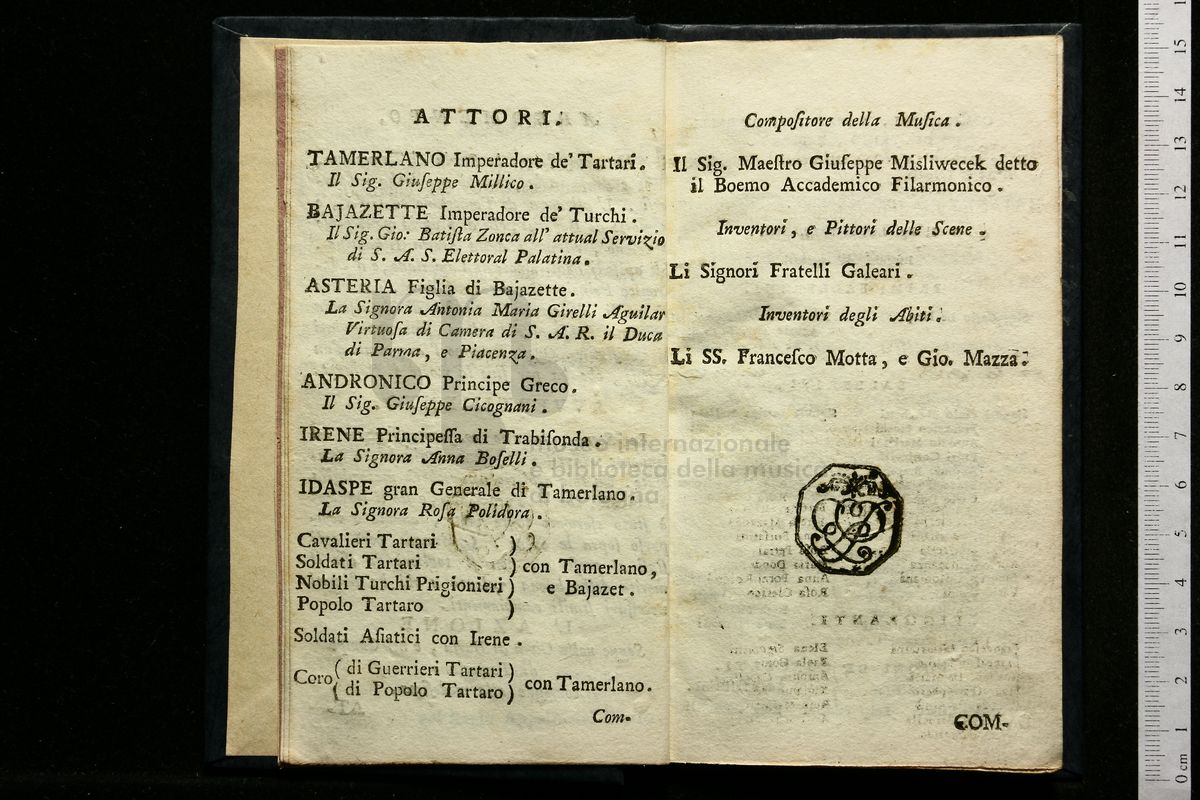 ATTORI.
TAMERLANO Imperadore de' Tartari.
Il Sig. Giuſeppe Millico.
BAJAZETTE Imperadore de' Turchi.
Il Sig. Gio: Batiſta Zonca all' attual Servizio
di S. A. S. Elettoral Palatina.
ASTERIA Figlia di Bajazette.
La Signora Antonia Maria Girelli Aguilar
Virtuoſa di Camera di S. A. R. il Duca
di Parma, e Piacenza.
ANDRONICO Principe Greco.
Il Sig. Giuſeppe Cicognani.
IRENE Principeſſa di Trabiſonda.
La Signora Anna Boſelli.
IDASPE gran Generale di Tamerlano.
La Signora Roſa Polidora.
Cavalieri Tartari )
Soldati Tartari ) con Tamerlano,
Nobili Turchi Prigionieri ) e Bajazet.
Popolo Tartaro )
Soldati Aſiatici con Irene.
Coro ( di Guerrieri Tartari )
( di Popolo Tartaro ) con Tamerlano.
Com-
Compoſitore della Muſica.
Il Sig. Maeſtro Giuſeppe Misliwecek detto
il Boemo Accademico Filarmonico.
Inventori, e Pittori delle Scene.
Li Signori Fratelli Galeari.
Inventori degli Abiti.
Li SS. Franceſco Motta, e Gio. Mazza.
COM-
internazionale
e biblioteca della musica
0 cm 1 2 3 4 5 6 7 8 9 10 11 12 13 14 15